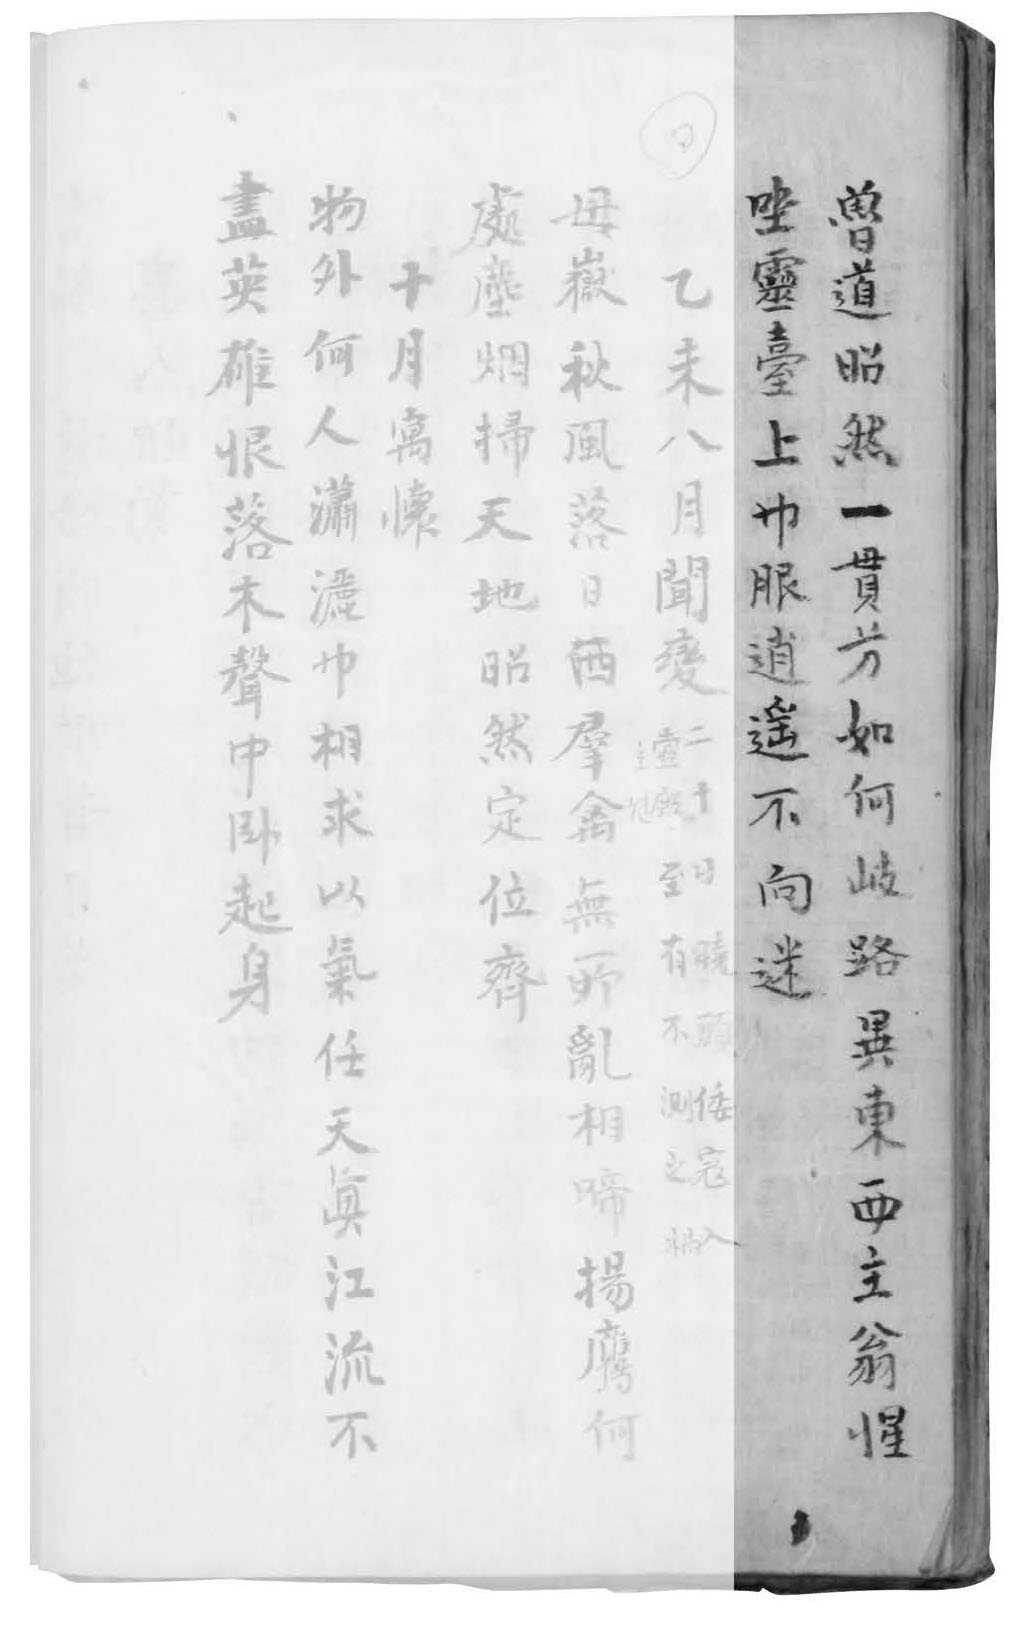 魯道昭然一貫芳如何岐路異東西主翁惺
坐靈臺上巾服逍遥不向迷
乙未八月聞變
二十日曉頭倭寇入
壼殿至有不測之禍
母嶽秋風落日西羣禽無所亂相啼揚鷹何
處塵烟掃天地昭然定位齊
十月寓懷
物外何人瀟灑巾相求以氣任天眞江流不
盡英雄恨落木聲中卧起身